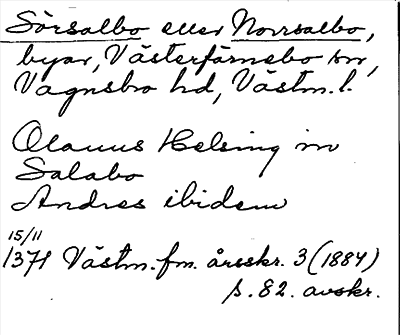 Sörsalbo eller Norrsalbo,
byar, Västerfärnebo sn,
Vagnsbro hd, Västm. l.
Olauus Helsing in
Salabo
Andres ibidem
15/11
1371 Västm. fm. årsskr. 3 (1884)
s. 82. avskr.